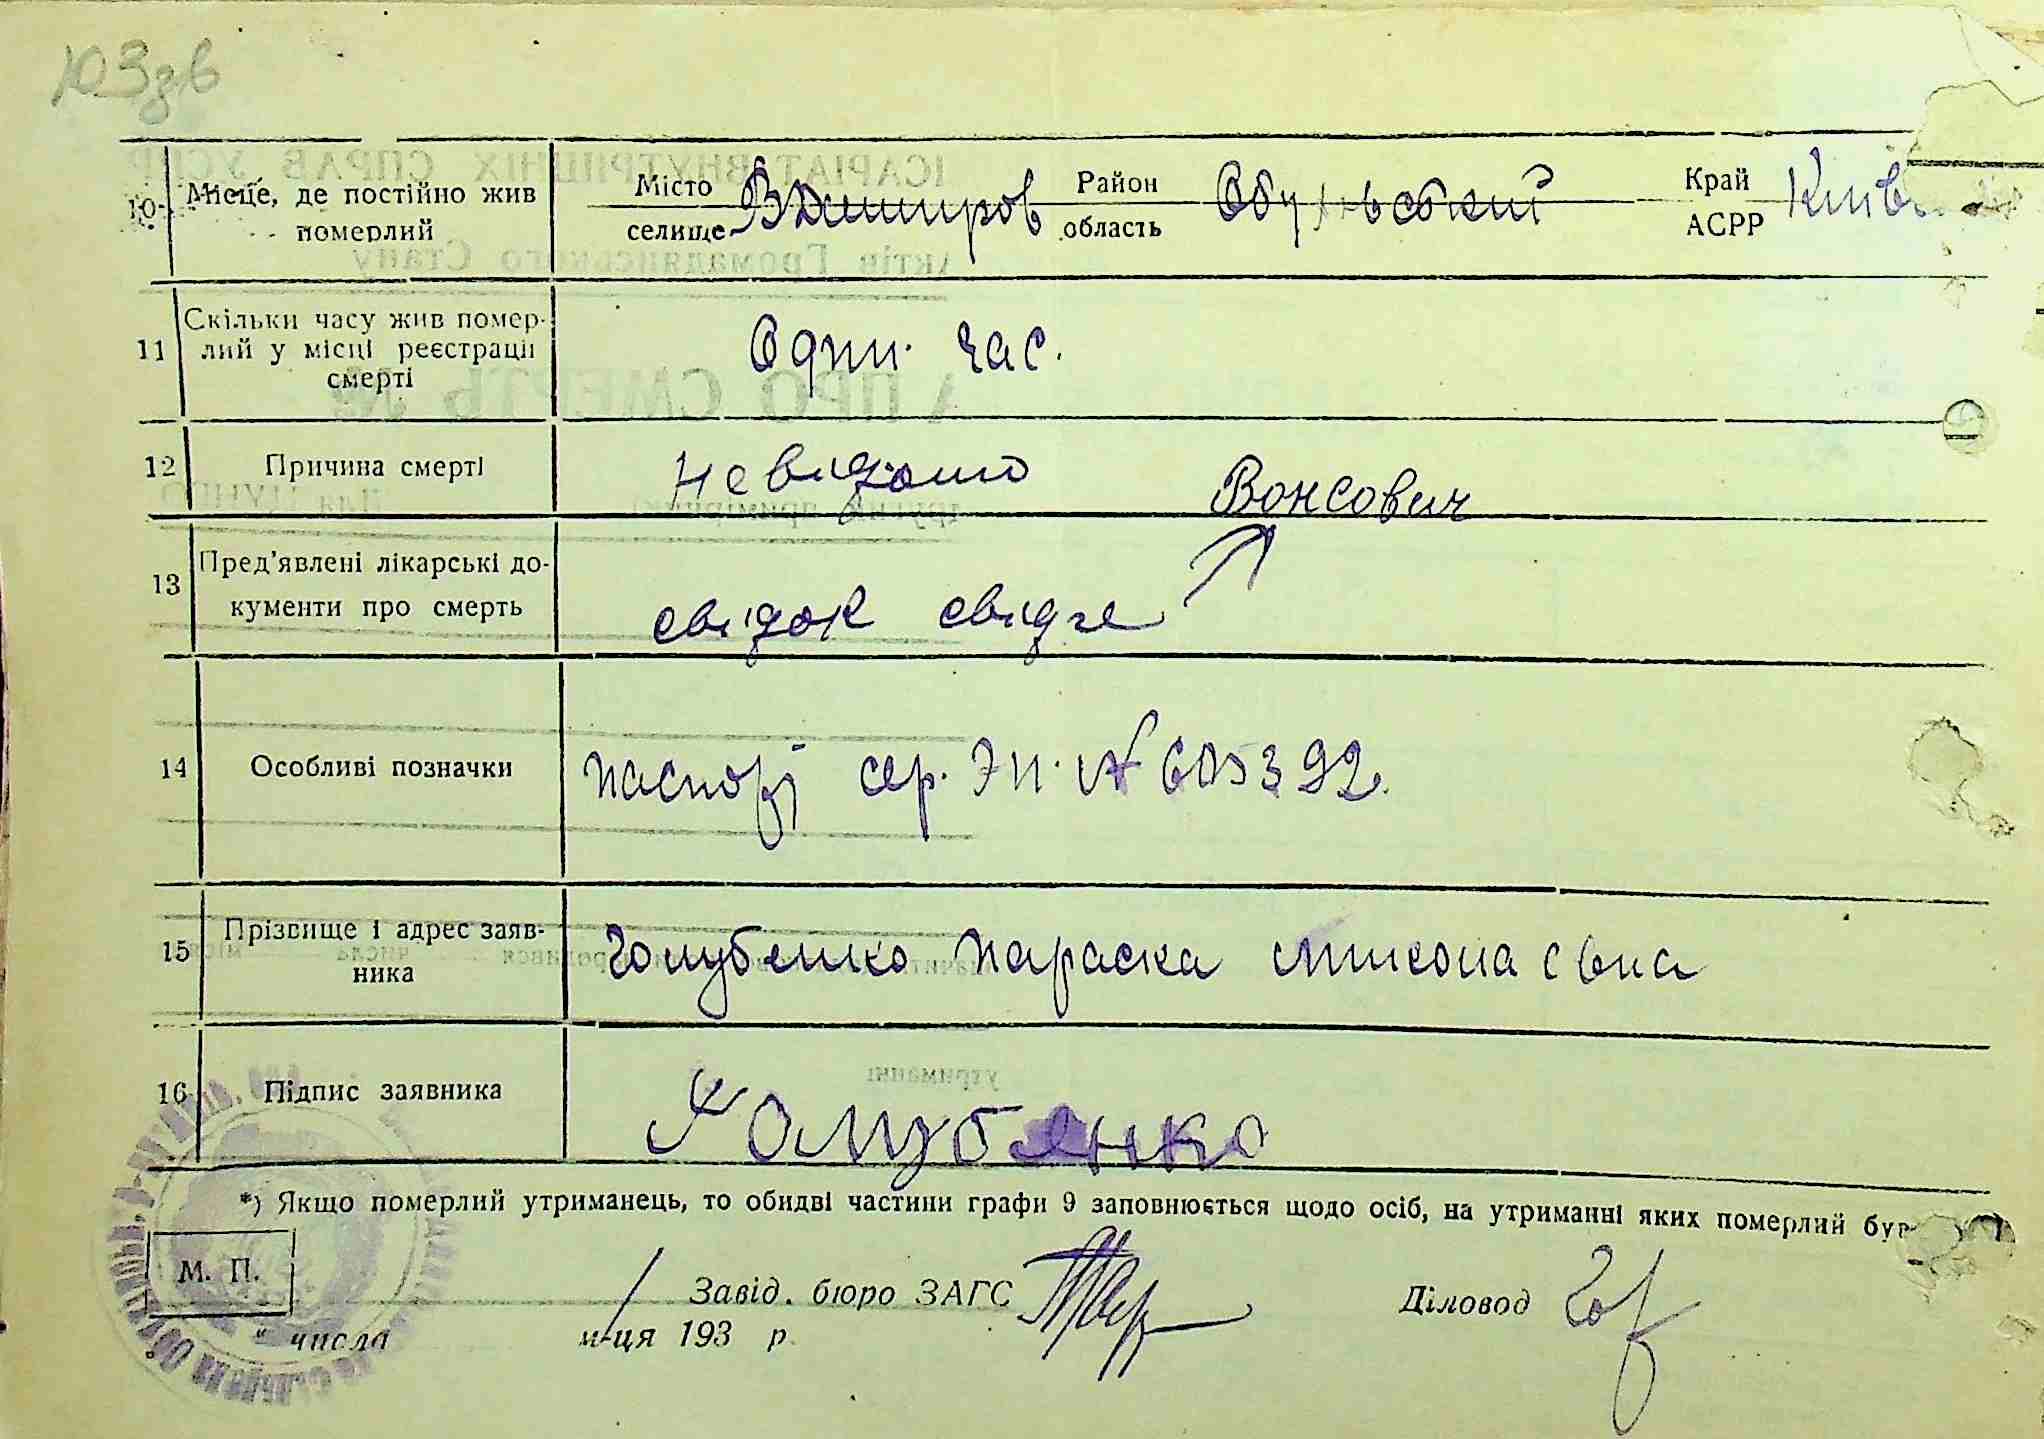 103зв
10 Місце, де постійно жив померлий Місто селище В Дмитров Район область Обухівський Край АСРР Київ
11 Скільки часу жив помер-
лий у місці реєстрації
смерті
Один час.
12 Причина смерті Невідомо Вонсович
13 Пред'явлені лікарські до-
кументи про смерть
свідок свідче
14 Особливі позначки паспорт сер. ЭП. № 605392.
15 Прізвище і адрес заяв-
ника
Голубенко Параска Миколаєвна
16 Підпис заявника Голубянко
*) Якщо померлий утриманець, то обидві частини графи 9 заповнюється щодо осіб, на утриманні яких померлий був
М. П.
Завід. бюро ЗАГС
Діловод
" числа м-ця 193 р.